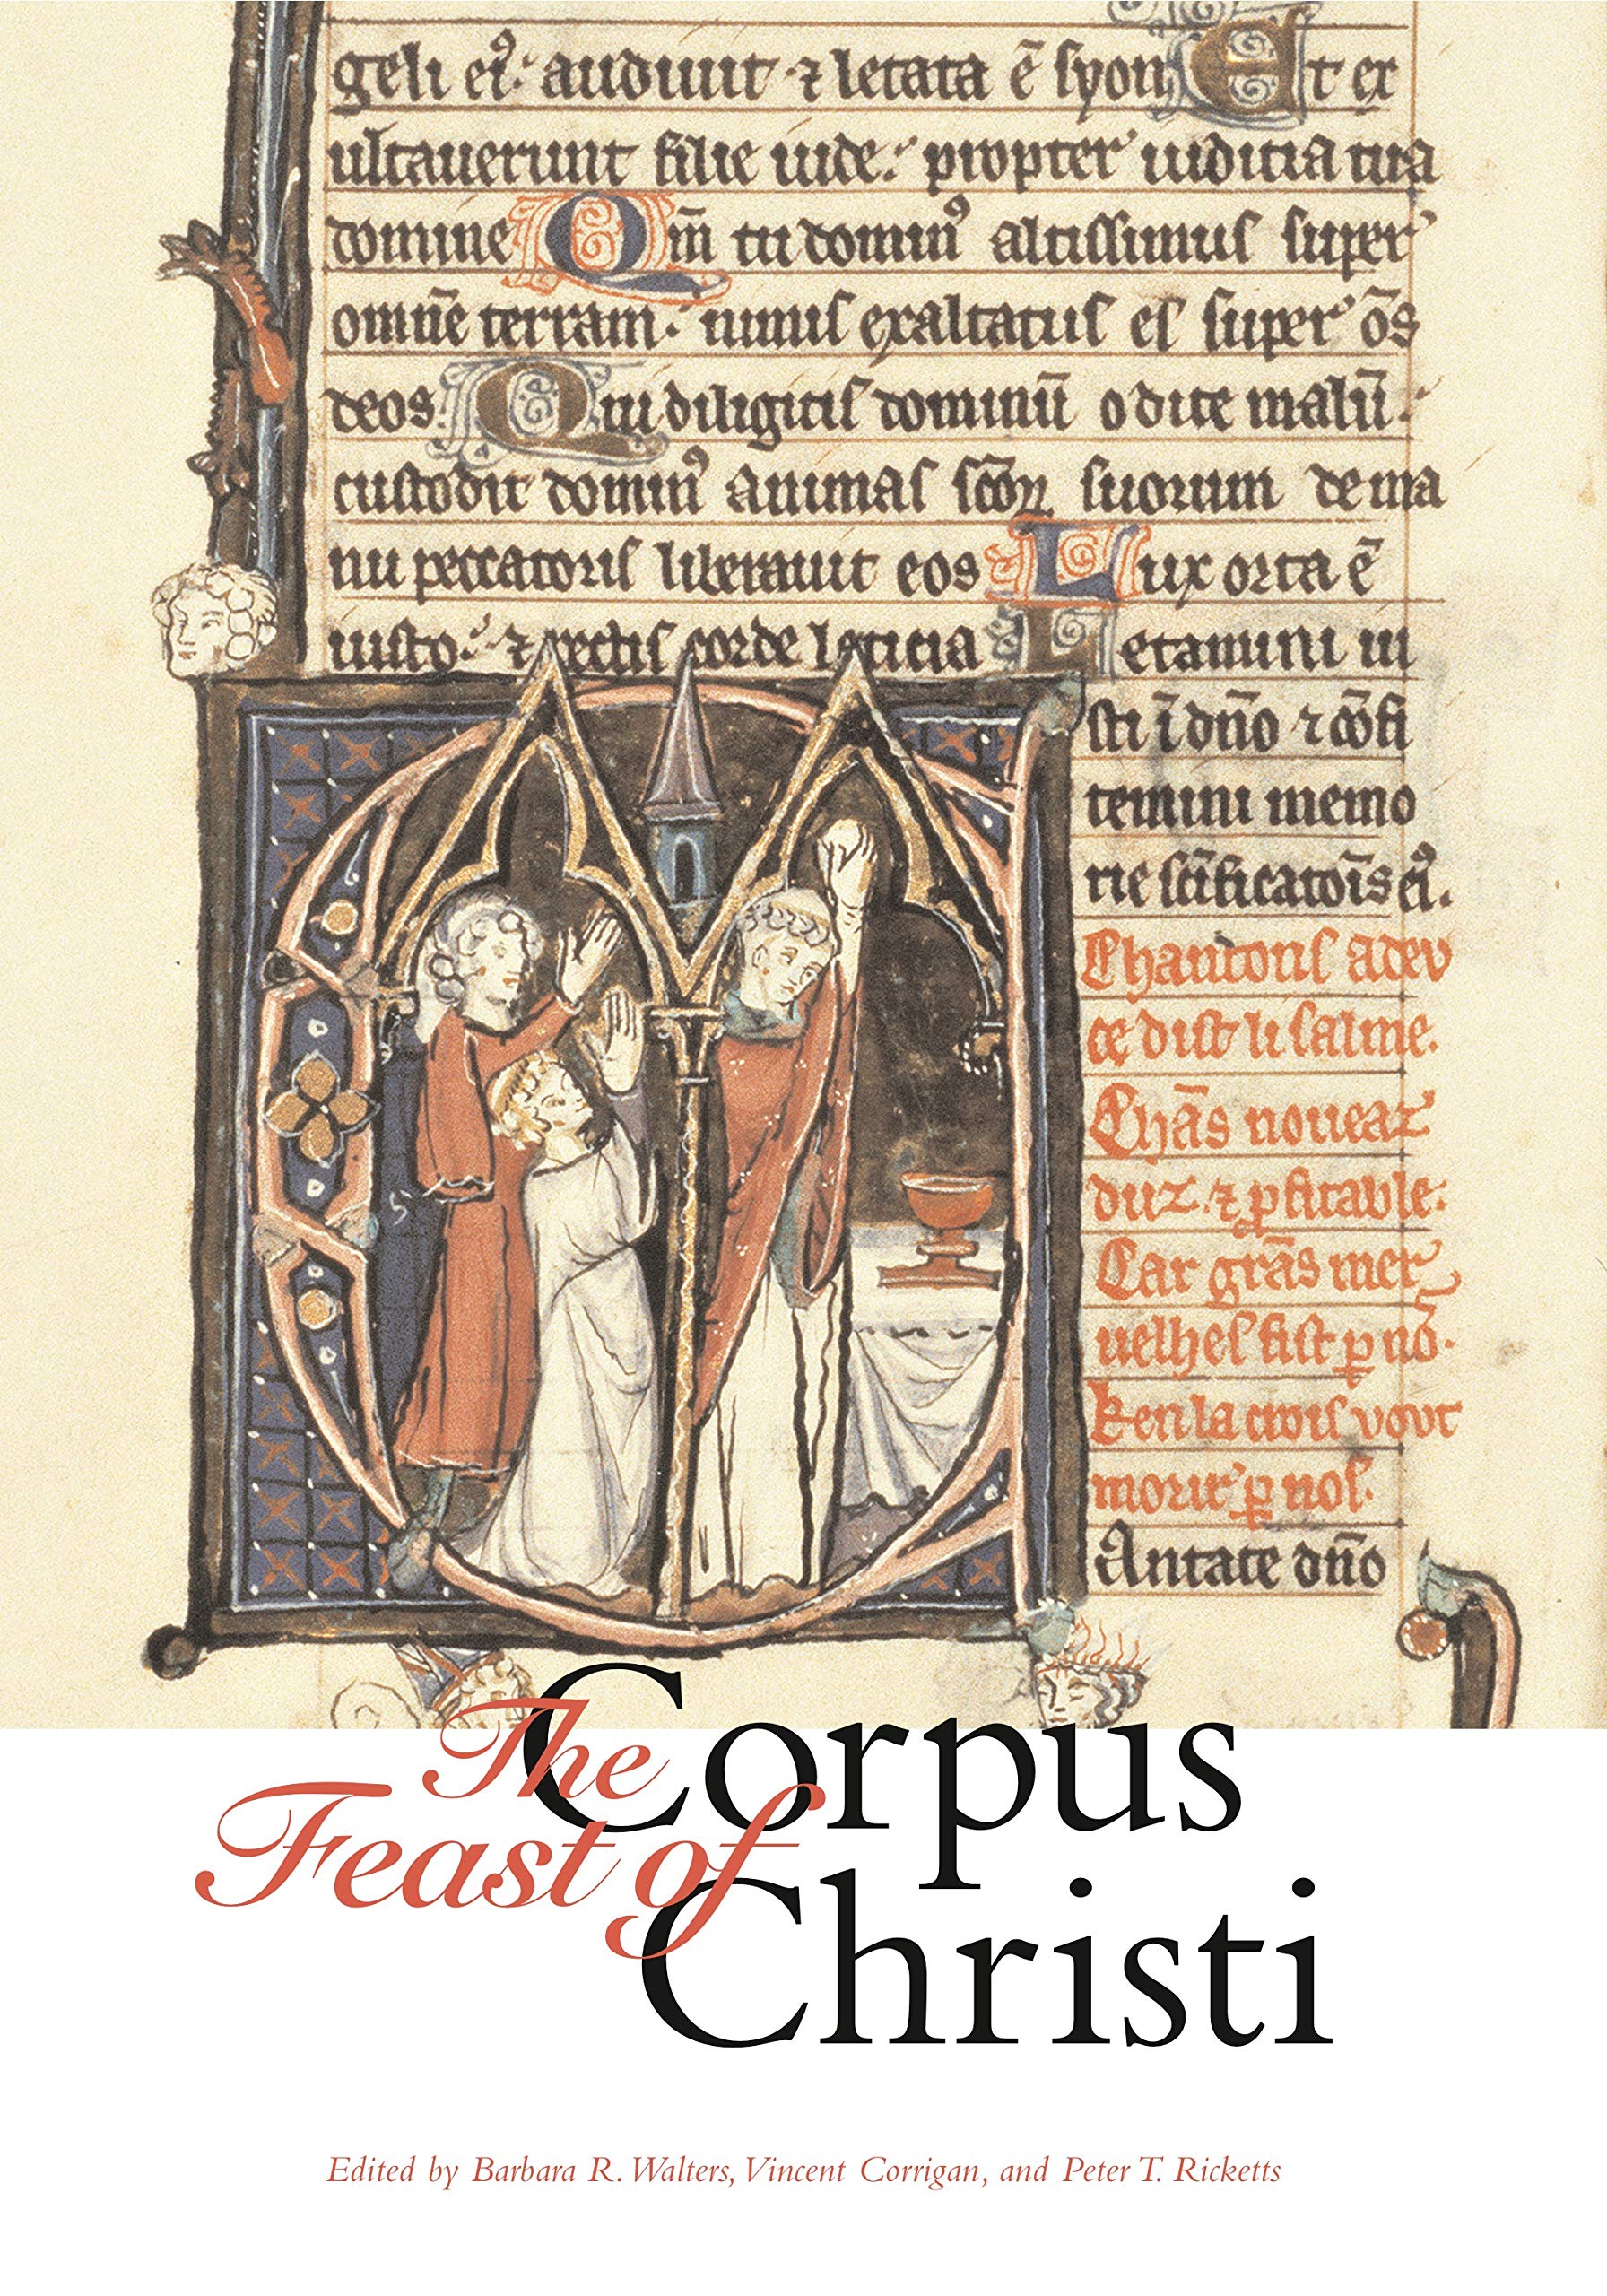 geli ei⁹: audiuit ⁊ letata ē syon Et ex
ultauerunt filie iude: propter iudicia tua
domine Qm̄ tu domin⁹ altissimus super
omnē terram: nimis exaltatus es super o̅s
deos Qui diligitis dominū odite malū:
custodit domin⁹ animas sc̄oꝝ suorum de ma
nu peccatoris liberauit eos Lux orta ē
iusto: ⁊ rectis corde leticia Letamini iu
sti ī dn̄o ⁊ cōfi
temini memo
rie sc̄ificatōis ei⁹.
Chantons a deu
ce dist li salme.
Chās noueaz
duz ⁊ ꝓfitable:
Car grās mer
uelhes fist ꝑ nō.
Ken la crois vout
morir ꝑ nos.
Antate dn̄o
The
Corpus
Feast of
Christi
Edited by Barbara R. Walters, Vincent Corrigan, and Peter T. Ricketts